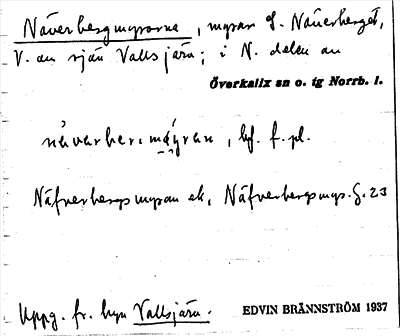 Näverbergmyrorna, myrar S. Näverberget,
V. om sjön Vallsjärv; i N. delen av
Överkalix sn o. tg Norrb. l.
návarber:mýran, bf. f. pl.
Näfverbergsmyran ek, Näfverbergsmyr. G. 23
Uppg. fr. byn Vallsjärv.
EDVIN BRÄNNSTRÖM 1937